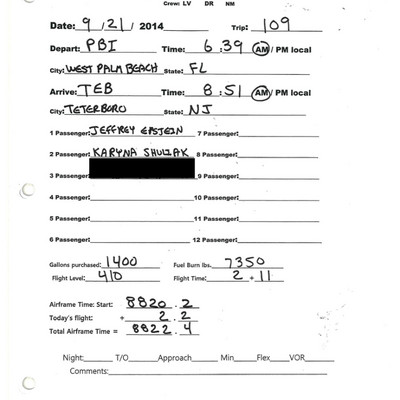 Crew: LV DR NM
Date: 9/21/2014 Trip: 109
Depart: PBI Time: 6:39 AM/PM local
City: WEST PALM BEACH State: FL
Arrive: TEB Time: 8:51 AM/PM local
City: TETERBORO State: NJ
1 Passenger: JEFFREY EPSTEIN 7 Passenger:
2 Passenger: KARYNA SHULIAK 8 Passenger:
3 Passenger: 9 Passenger:
4 Passenger: 10 Passenger:
5 Passenger: 11 Passenger:
6 Passenger: 12 Passenger:
Gallons purchased: 1400 Fuel Burn lbs. 7350
Flight Level: 410 Flight Time: 2 + 11
Airframe Time: Start: 8820.2
Today's flight: + 2.2
Total Airframe Time = 8822.4
Night: T/O Approach Min Flex VOR
Comments: